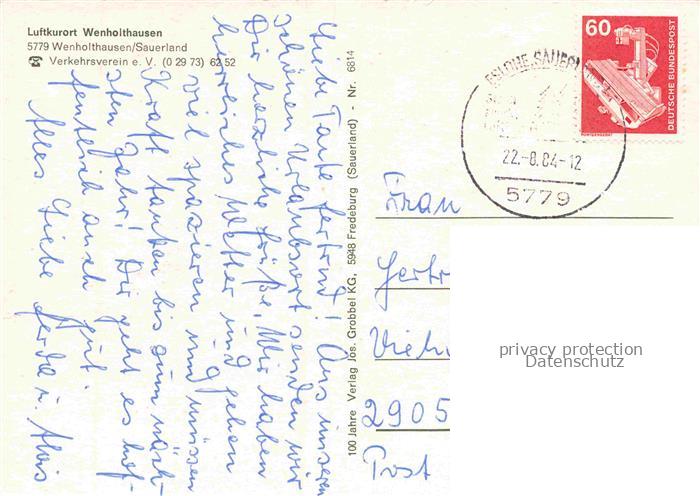 Luftkurort Wenholthausen
5779 Wenholthausen/Sauerland
☎ Verkehrsverein e. V. (0 29 73) 62 52
Liebe Tante Gertrud! Aus unserem
schönen Urlaubsort senden wir
Dir herzliche Grüße. Wir haben
herrliches Wetter und gehen
viel spazieren und müssen
Kraft tanken bis zum näch-
sten Jahr! Dir geht es hof-
fentlich auch gut.
Alles Liebe Gerda u. Alois
100 Jahre Verlag Jos. Grobbel KG, 5948 Fredeburg (Sauerland) - Nr. 6814
60
DEUTSCHE BUNDESPOST
RÖNTGENGERÄT
ESLOHE, SAUERL
22.-8.84-12
5779
Frau
Gertr
Vieh
2905
Post
privacy protection
Datenschutz